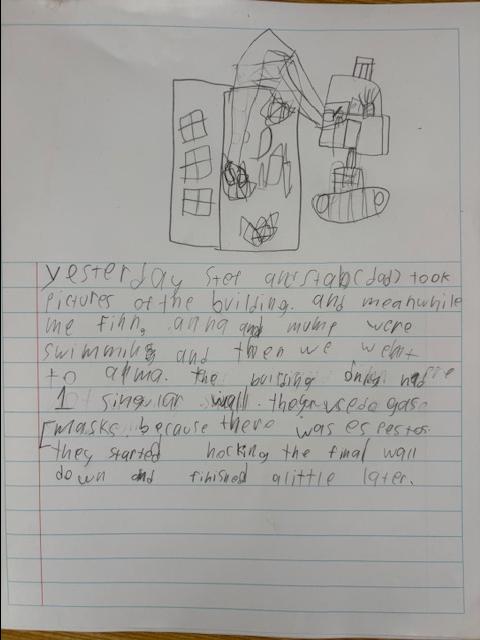 yesterday stef and stab(dad) took
pictures of the building. and meanwhile
me finn, anna and mume were
swimming and then we went
to alima. the building only had
1 singular wall. they used gas
masks. because there was espestos.
they started nocking the final wall
down and finished alittle later.